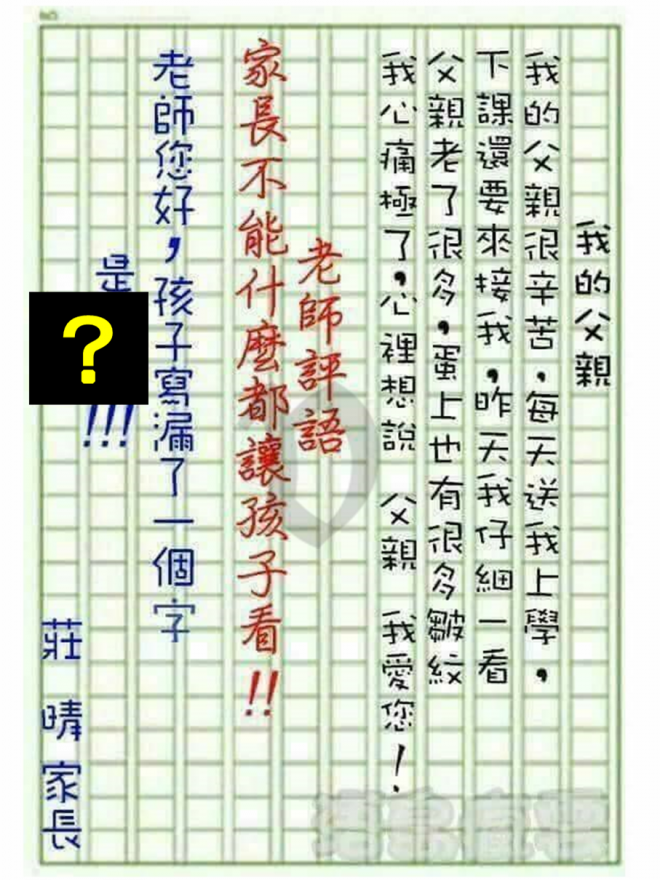 我的父親
我的父親很辛苦，每天送我上學，
下課還要來接我，昨天我仔細一看
父親老了很多，蛋上也有很多皺紋
我心痛極了，心裡想說 父親 我愛您！
老師評語
家長不能什麼都讓孩子看!!
老師您好，孩子寫漏了一個字
是?!!!
莊 晴 家長